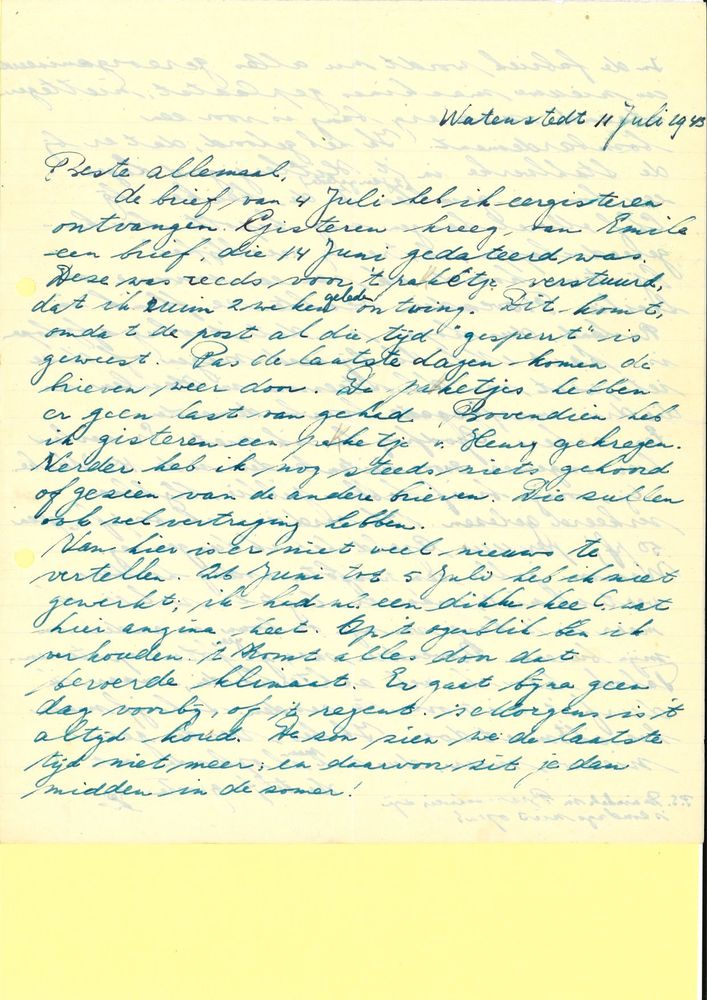 Watenstedt 11 Juli 1943
Beste allemaal,
de brief van 4 Juli heb ik eergisteren
ontvangen. Gisteren kreeg ik van Emile
een brief, die 14 Juni gedateerd was.
Deze was reeds voor 't paketje verstuurd,
dat ik ruim 2 weken geleden ontving. Dit komt,
omdat de post al die tijd "gesperrt" is
geweest. Pas de laatste dagen komen de
brieven weer door. De paketjes hebben
er geen last van gehad. Bovendien heb
ik gisteren een paketje v. Henry gekregen.
Verder heb ik nog steeds niets gehoord
of gezien van de andere brieven. Die zullen
ook wel vertraging hebben.
Van hier is er niet veel nieuws te
vertellen. 26 Juni tot 5 Juli heb ik niet
gewerkt; ik had nl. een dikke keel, wat
hier angina heet. Op 't ogenblik ben ik
verkouden. 't Komt alles door dat
beroerde klimaat. Er gaat bijna geen
dag voorbij, of 't regent. 's Morgens is 't
altijd koud. De zon zien we de laatste
tijd niet meer; en daarvoor zit je dan
midden in de zomer!